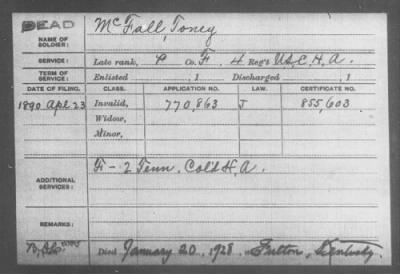 DEAD
NAME OF SOLDIER: McFall, Toney
SERVICE: Late rank, P Co. F, 4 Reg't U.S.C.H.A.
TERM OF SERVICE: Enlisted , 1 Discharged , 1
DATE OF FILING. CLASS. APPLICATION NO. LAW. CERTIFICATE NO.
1890 Apl 23 Invalid, 770,863 J 855,603
Widow,
Minor,
ADDITIONAL SERVICES: F - 2 Tenn. Col'd H.A.
REMARKS:
Died January 20, 1928, Fulton, Kentucky